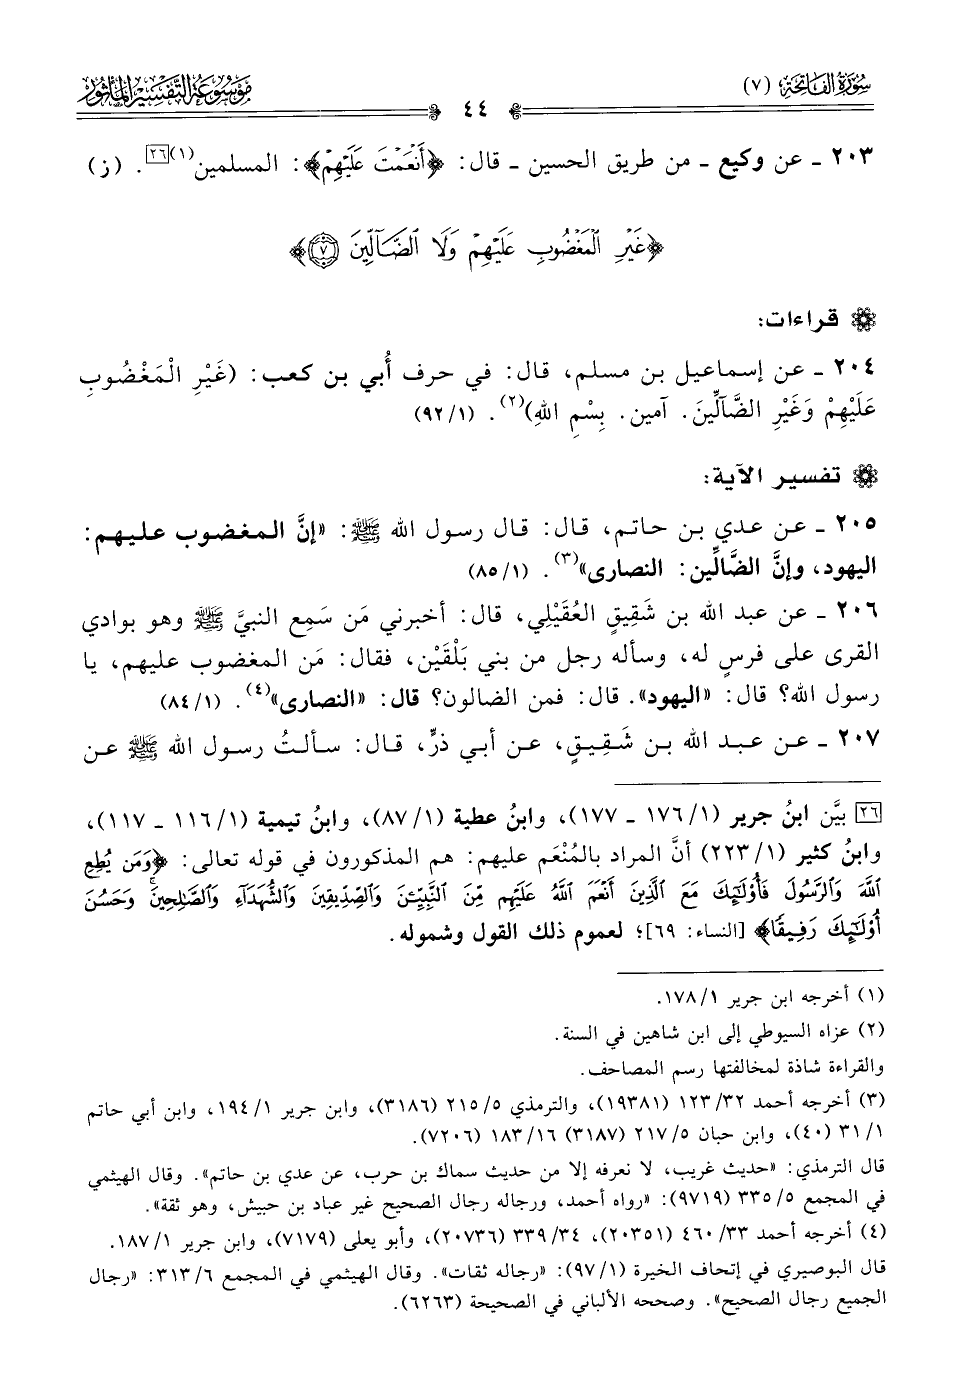 سُورَةُ الفَاتِحَةِ (٧)
٤٤
مَوْسُوعَة التَّفْسِيرِ المَأْثُور
٢٠٣ ـ عن وكيع ـ من طريق الحسين ـ قال: ﴿أَنْعَمْتَ عَلَيْهِمْ﴾: المسلمين(١)[٢٦]. (ز)
﴿غَيْرِ الْمَغْضُوبِ عَلَيْهِمْ وَلَا الضَّآلِّينَ ٧﴾
قراءات:
٢٠٤ ـ عن إسماعيل بن مسلم، قال: في حرف أُبي بن كعب: (غَيْرِ الْمَغْضُوبِ
عَلَيْهِمْ وَغَيْرِ الضَّآلِّينَ. آمين. بِسْمِ اللهِ)(٢). (٩٢/١)
تفسير الآية:
٢٠٥ ـ عن عدي بن حاتم، قال: قال رسول الله ﷺ: «إنَّ المغضوب عليهم:
اليهود، وإنَّ الضَّالِّين: النصارى»(٣). (٨٥/١)
٢٠٦ ـ عن عبد الله بن شَقِيقٍ العُقَيْلِي، قال: أخبرني مَن سَمِع النبيَّ ﷺ وهو بوادي
القرى على فرسٍ له، وسأله رجل من بني بَلْقَيْن، فقال: مَن المغضوب عليهم، يا
رسول الله؟ قال: «اليهود». قال: فمن الضالون؟ قال: «النصارى»(٤). (٨٤/١)
٢٠٧ ـ عن عبد الله بن شَقِيقٍ، عن أبي ذرٍّ، قال: سألتُ رسول الله ﷺ عن
[٢٦] بيَّن ابنُ جرير (١٧٦/١ ـ ١٧٧)، وابنُ عطية (٨٧/١)، وابنُ تيمية (١١٦/١ ـ ١١٧)،
وابنُ كثير (٢٢٣/١) أنَّ المراد بالمُنْعَم عليهم: هم المذكورون في قوله تعالى: ﴿وَمَن يُطِعِ
اللَّهَ وَالرَّسُولَ فَأُوْلَٰٓئِكَ مَعَ الَّذِينَ أَنْعَمَ اللَّهُ عَلَيْهِم مِّنَ النَّبِيِّـۧنَ وَالصِّدِّيقِينَ وَالشُّهَدَآءِ وَالصَّٰلِحِينَۚ وَحَسُنَ
أُوْلَٰٓئِكَ رَفِيقًا﴾ [النساء: ٦٩]؛ لعموم ذلك القول وشموله.
(١) أخرجه ابن جرير ١٧٨/١.
(٢) عزاه السيوطي إلى ابن شاهين في السنة.
والقراءة شاذة لمخالفتها رسم المصاحف.
(٣) أخرجه أحمد ١٢٣/٣٢ (١٩٣٨١)، والترمذي ٢١٥/٥ (٣١٨٦)، وابن جرير ١٩٤/١، وابن أبي حاتم
٣١/١ (٤٠)، وابن حبان ٢١٧/٥ (٣١٨٧) ١٨٣/١٦ (٧٢٠٦).
قال الترمذي: «حديث غريب، لا نعرفه إلا من حديث سماك بن حرب، عن عدي بن حاتم». وقال الهيثمي
في المجمع ٣٣٥/٥ (٩٧١٩): «رواه أحمد، ورجاله رجال الصحيح غير عباد بن حبيش، وهو ثقة».
(٤) أخرجه أحمد ٤٦٠/٣٣ (٢٠٣٥١)، ٣٣٩/٣٤ (٢٠٧٣٦)، وأبو يعلى (٧١٧٩)، وابن جرير ١٨٧/١.
قال البوصيري في إتحاف الخيرة (٩٧/١): «رجاله ثقات». وقال الهيثمي في المجمع ٣١٣/٦: «رجال
الجميع رجال الصحيح». وصححه الألباني في الصحيحة (٦٢٦٣).